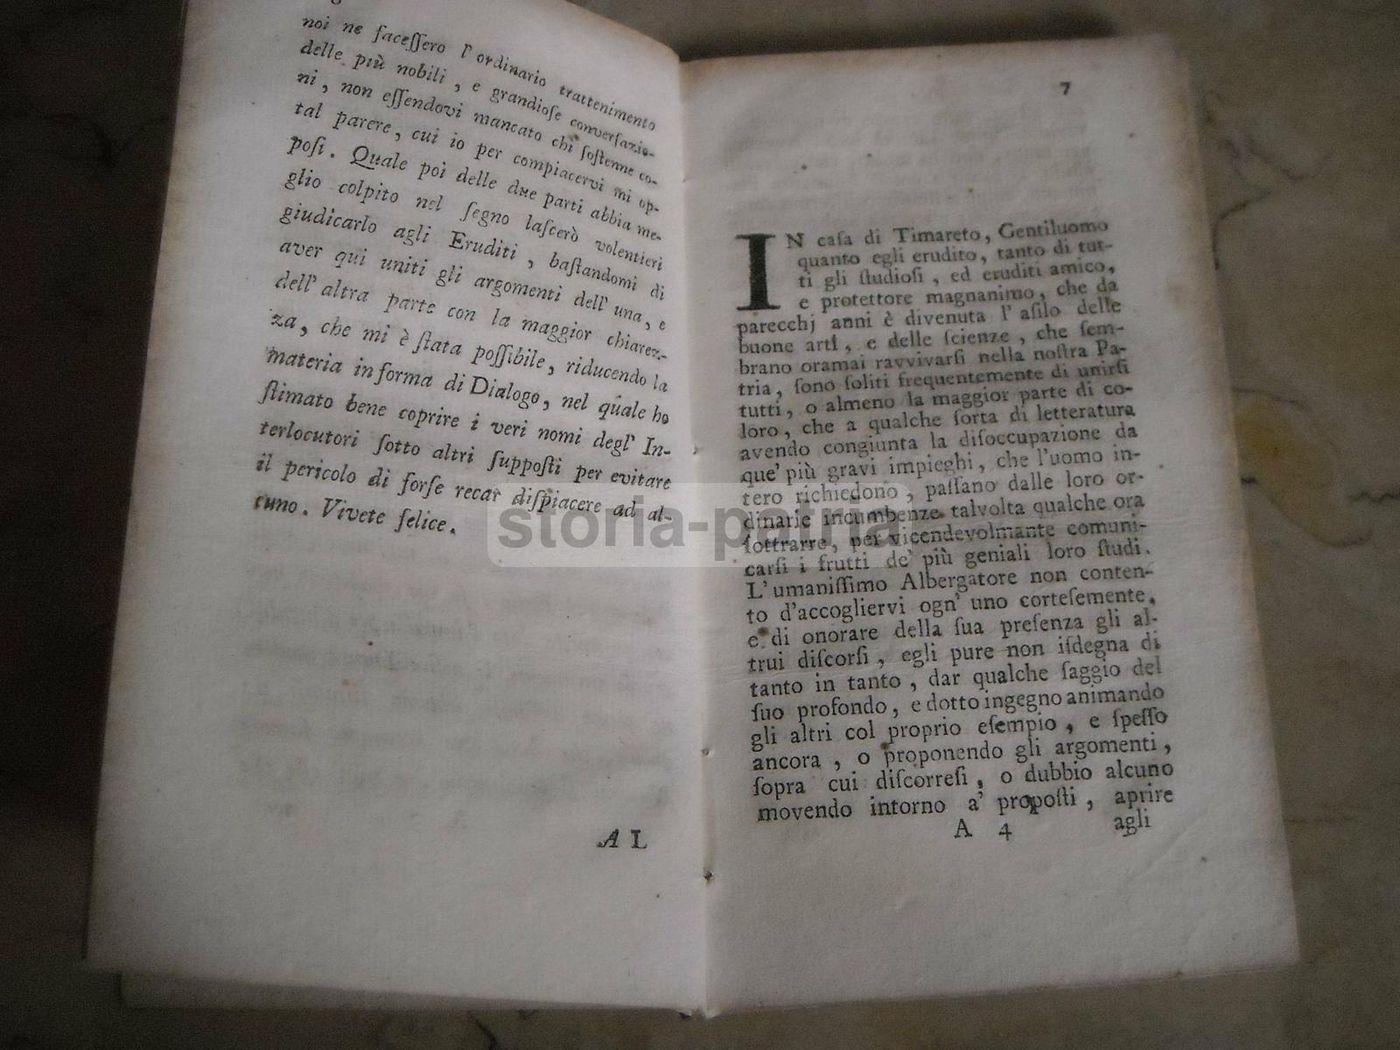 noi ne faceſſero l'ordinario trattenimento
delle più nobili, e grandioſe converſazio-
ni, non eſſendovi mancato chi ſoſtenne co-
tal parere, cui io per compiacervi mi op-
poſi. Quale poi delle due parti abbia me-
glio colpito nel ſegno laſcerò volentieri
giudicarlo agli Eruditi, baſtandomi di
aver qui uniti gli argomenti dell'una, e
dell'altra parte con la maggior chiarez-
za, che mi è ſtata poſſibile, riducendo la
materia in forma di Dialogo, nel quale ho
ſtimato bene coprire i veri nomi degl'In-
terlocutori ſotto altri ſuppoſti per evitare
il pericolo di forſe recar diſpiacere ad al-
cuno. Vivete felice.
A L
7
IN caſa di Timareto, Gentiluomo
quanto egli erudito, tanto di tut-
ti gli ſtudioſi, ed eruditi amico,
e protettore magnanimo, che da
parecchj anni è divenuta l'aſilo delle
buone arti, e delle ſcienze, che ſem-
brano oramai ravvivarſi nella noſtra Pa-
tria, ſono ſoliti frequentemente di unirſi
tutti, o almeno la maggior parte di co-
loro, che a qualche ſorta di letteratura
avendo congiunta la diſoccupazione da
que' più gravi impieghi, che l'uomo in-
tero richiedono, paſſano dalle loro or-
dinarie incumbenze talvolta qualche ora
ſottrarre, per vicendevolmante comuni-
carſi i frutti de' più geniali loro ſtudi.
L'umaniſſimo Albergatore non conten-
to d'accogliervi ogn'uno corteſemente,
e di onorare della ſua preſenza gli al-
trui diſcorſi, egli pure non iſdegna di
tanto in tanto, dar qualche ſaggio del
ſuo profondo, e dotto ingegno animando
gli altri col proprio eſempio, e ſpeſſo
ancora, o proponendo gli argomenti,
ſopra cui diſcorreſi, o dubbio alcuno
movendo intorno a' propoſti, aprire
A 4 agli
storia-patria